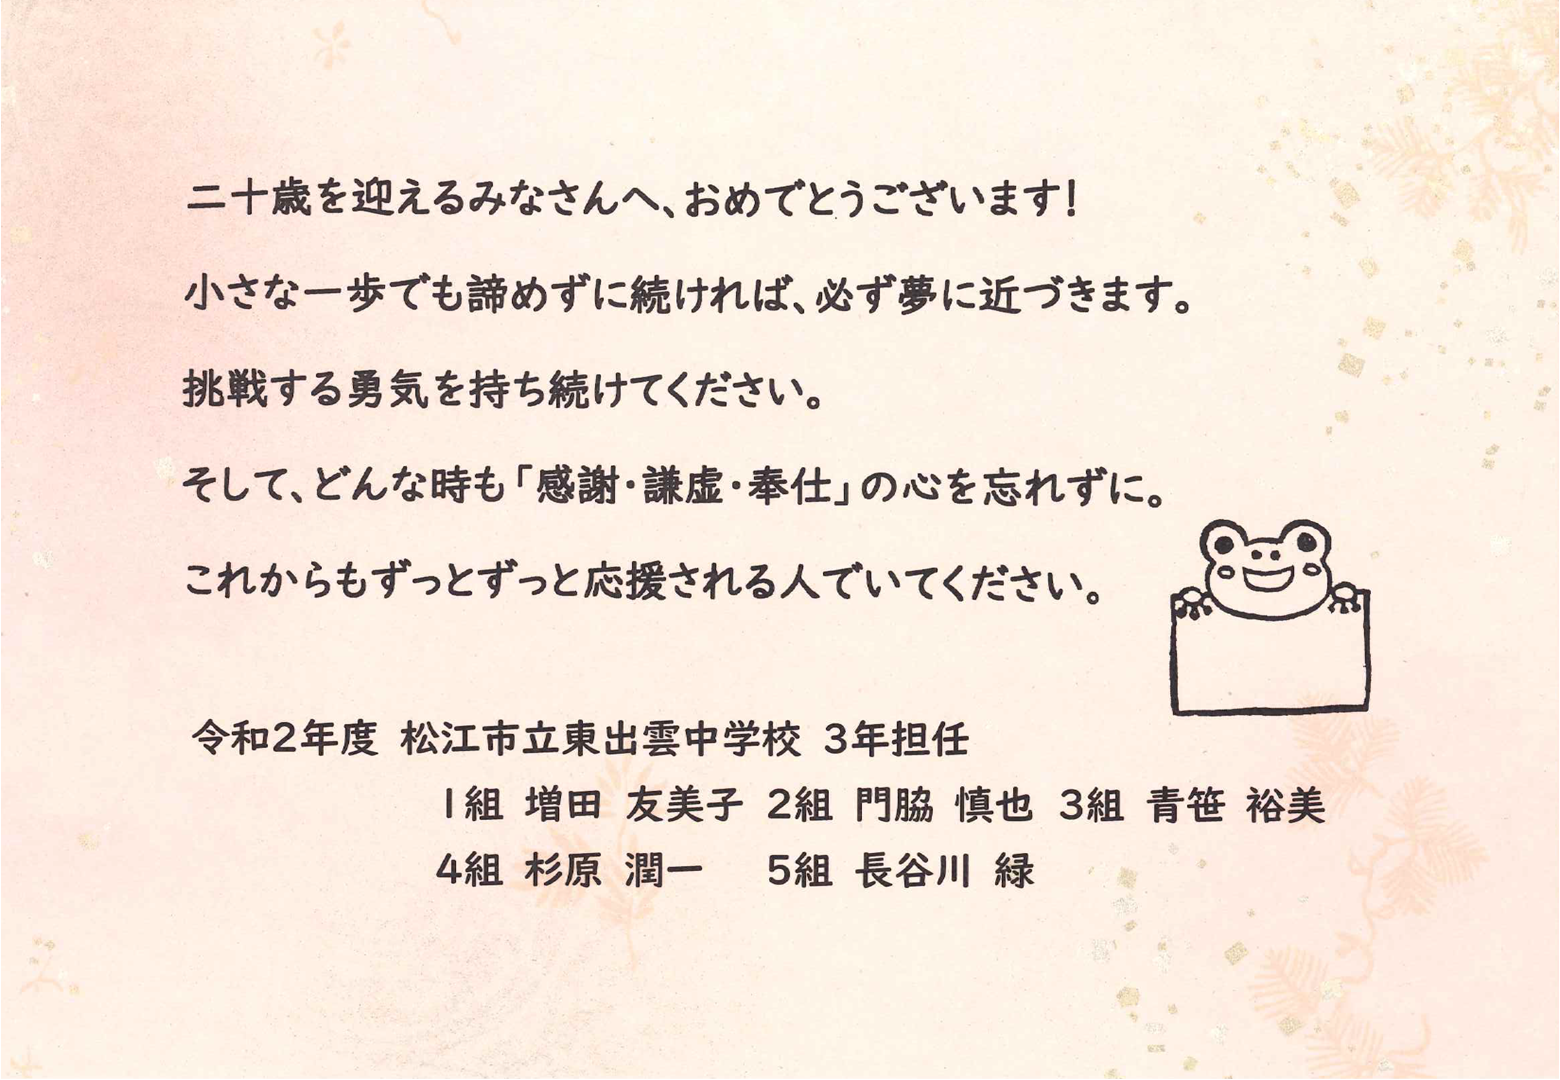 二十歳を迎えるみなさんへ、おめでとうございます！
小さな一歩でも諦めずに続ければ、必ず夢に近づきます。
挑戦する勇気を持ち続けてください。
そして、どんな時も「感謝・謙虚・奉仕」の心を忘れずに。
これからもずっとずっと応援される人でいてください。
令和2年度 松江市立東出雲中学校 3年担任
1組 増田 友美子 2組 門脇 慎也 3組 青笹 裕美
4組 杉原 潤一 5組 長谷川 緑